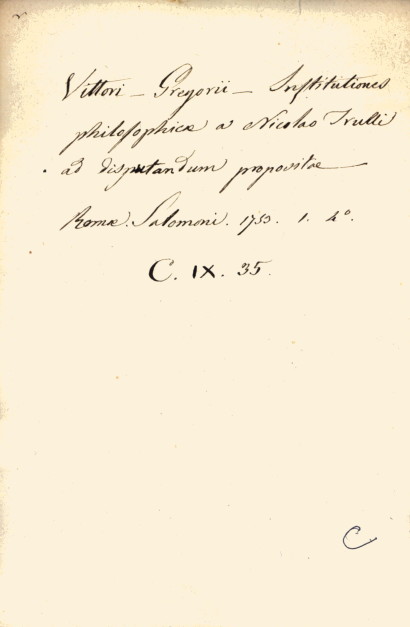 Vittori – Gregorii – Institutiones
philosophicæ a Nicolao Trulli
ad disputandum propositae —
Romæ. Salomoni. 1753. 1. 4°.
C. IX. 35.
C